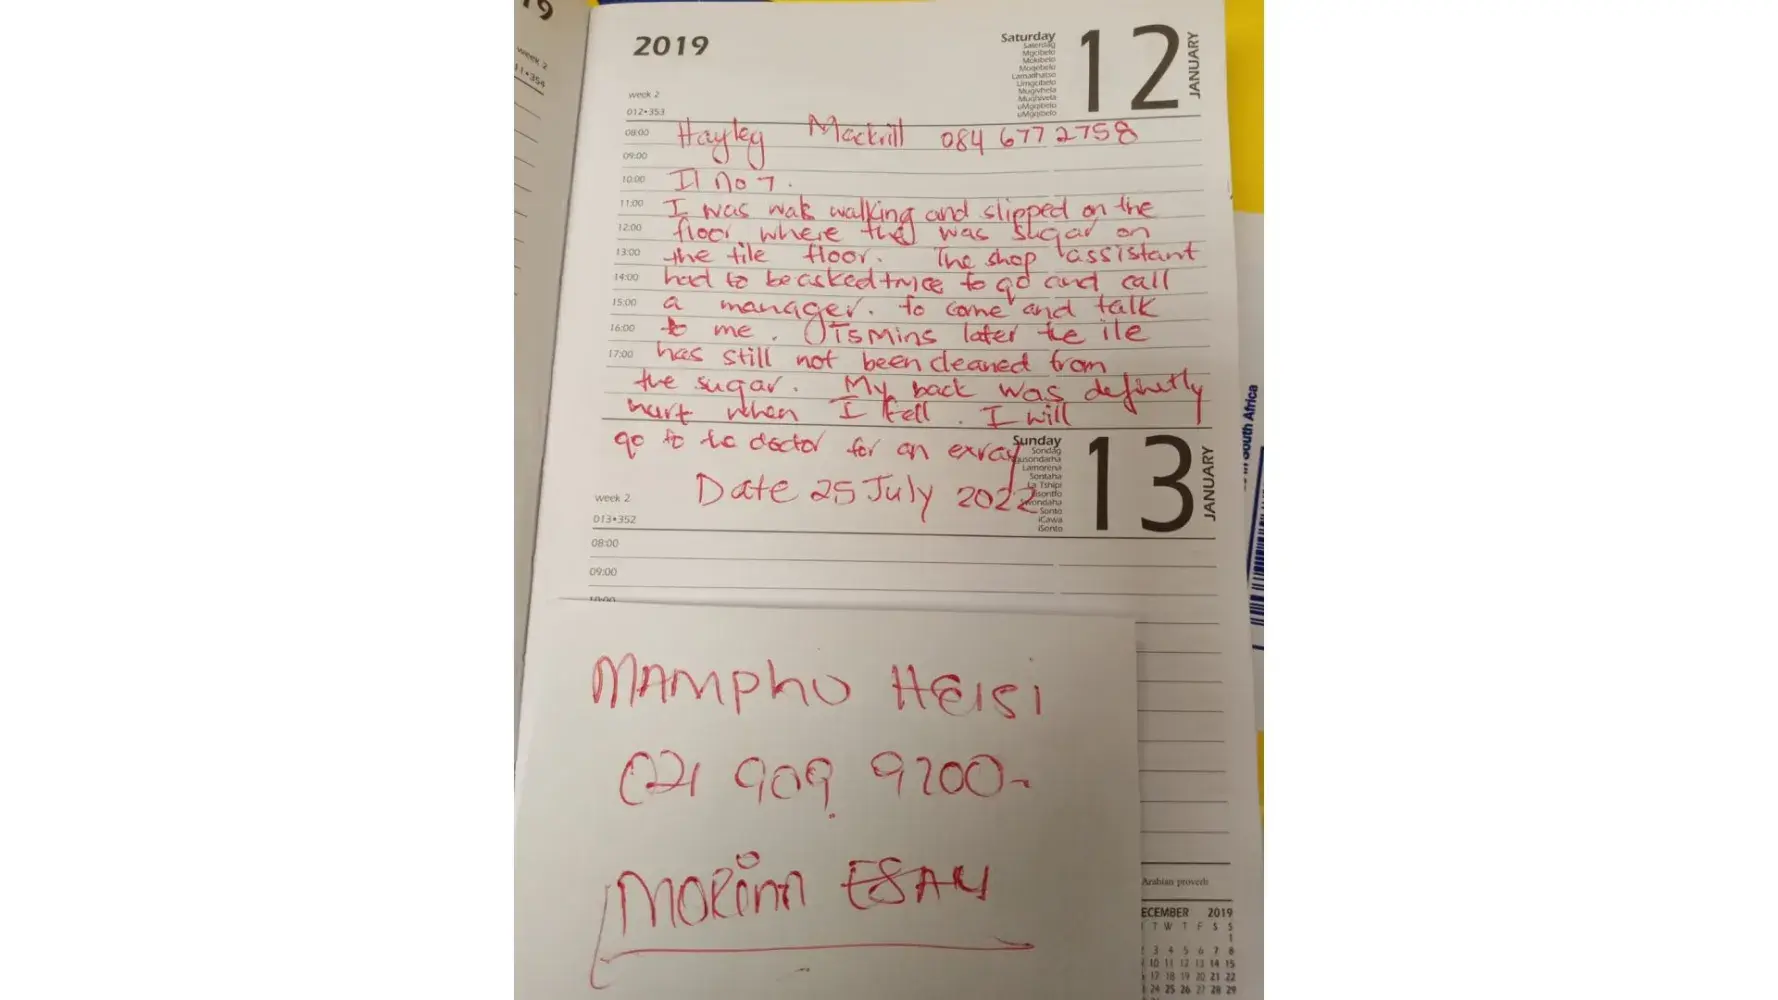 19
week 2
11•354
2019
Saturday
Saterdag
Mgcibelo
Mokibelo
Moqebelo
Lamathatso
Umgubelo
Mugivhela
Mughivela
uMgqibelo
uMgqibelo
12
JANUARY
week 2
012•353
08:00 Hayley Mackrill 084 677 2758
09:00
10:00 II no 7.
11:00 I was wak walking and slipped on the
12:00 floor where they was sugar on
13:00 the tile floor. The shop assistant
14:00 had to be asked twice to go and call
15:00 a manager. to come and talk
16:00 to me. 15 Mins later te ile
17:00 has still not been cleaned from
the sugar. My back was definetly
hurt when I fell. I will
go to to doctor for an exray
Sunday
Sondag
Lamorena
Sontaha
La Tshipi
Sonto
iCawa
iSonto
13
JANUARY
Date 25 July 2022
week 2
013•352
08:00
09:00
10:00
MAMPHO HEISI
021 909 9200
MORINA ESAU
in South Africa
Arabian proverb
ECEMBER 2019
T W T F S S
1
3 4 5 6 7 8
10 11 12 13 14 15
17 18 19 20 21 22
24 25 26 27 28 29